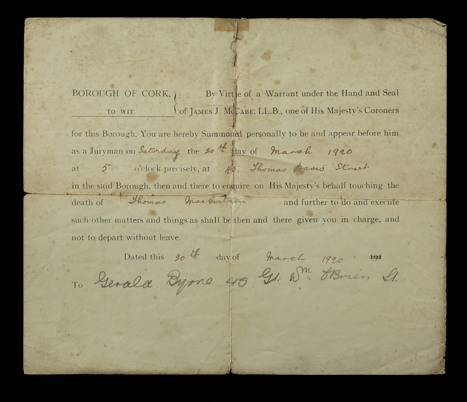 BOROUGH OF CORK, By Virtue of a Warrant under the Hand and Seal
TO WIT of JAMES J. McCABE, LL.B., one of His Majesty's Coroners
for this Borough, You are hereby Summoned personally to be and appear before him
as a Juryman on Saturday the 20th day of March 1920
at 5 o'clock precisely, at Thomas Davis Street
in the said Borough, then and there to enquire on His Majesty's behalf touching the
death of Thomas MacCurtain and further to do and execute
such other matters and things as shall be then and there given you in charge, and
not to depart without leave.
Dated this 20th day of March 1920
To Gerald Byrne Gt. Wm. O'Brien St.